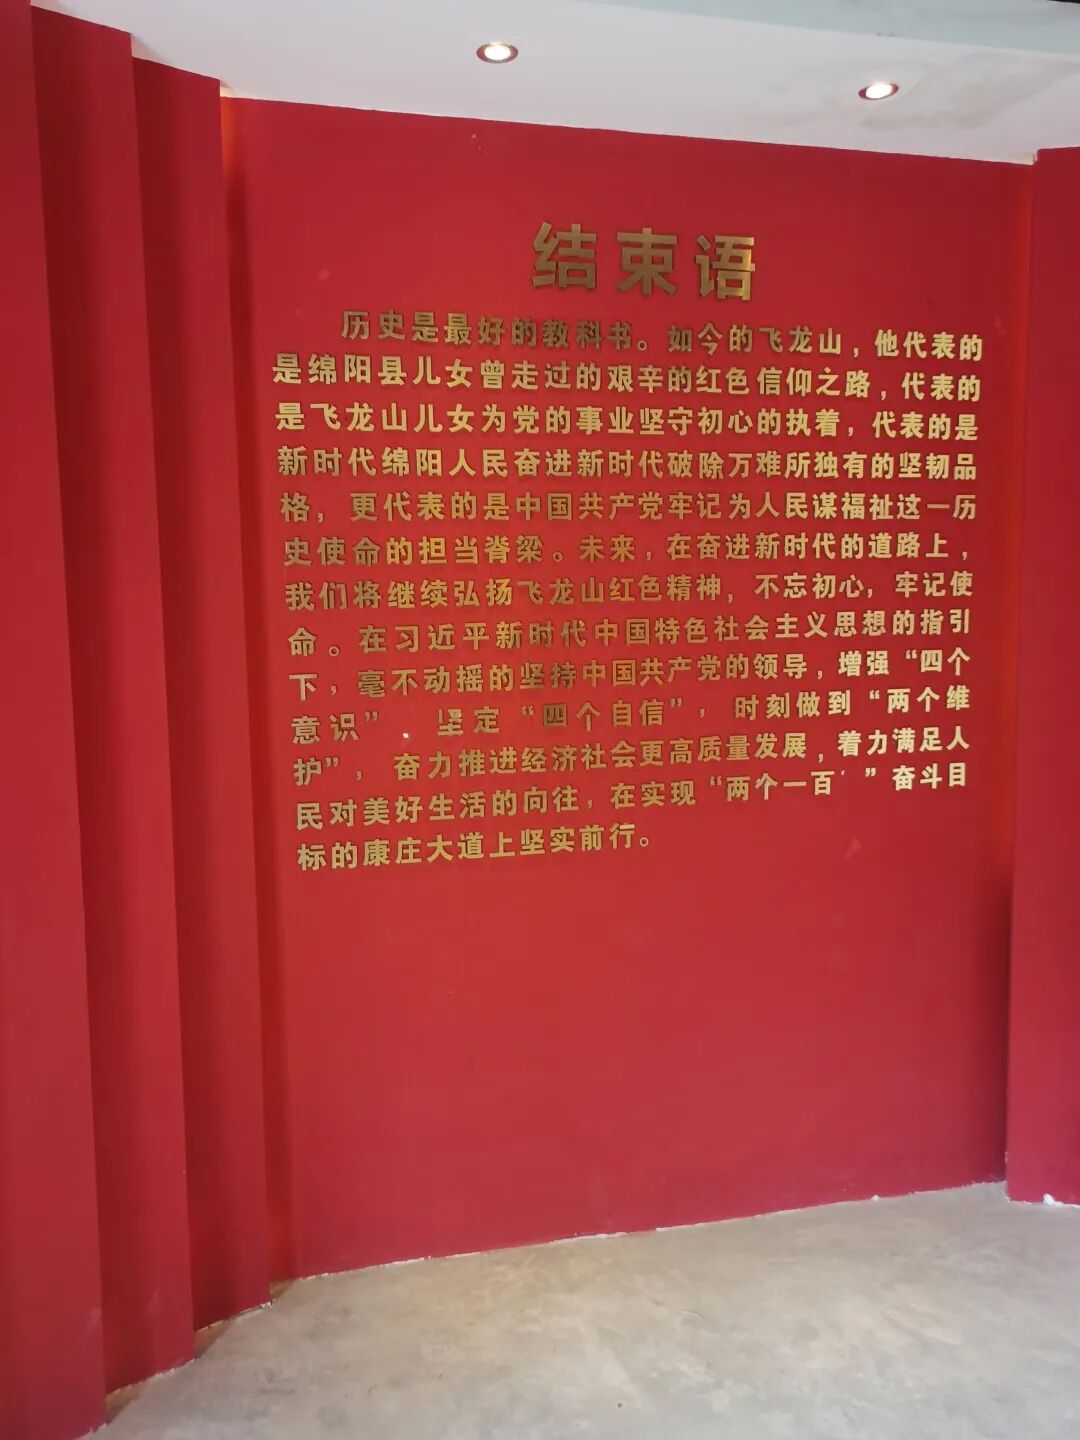 结束语
历史是最好的教科书。如今的飞龙山，他代表的
是绵阳县儿女曾走过的艰辛的红色信仰之路，代表的
是飞龙山儿女为党的事业坚守初心的执着，代表的是
新时代绵阳人民奋进新时代破除万难所独有的坚韧品
格，更代表的是中国共产党牢记为人民谋福祉这一历
史使命的担当脊梁。未来，在奋进新时代的道路上，
我们将继续弘扬飞龙山红色精神，不忘初心，牢记使
命。在习近平新时代中国特色社会主义思想的指引
下，毫不动摇的坚持中国共产党的领导，增强“四个
意识”、坚定“四个自信”，时刻做到“两个维
护”，奋力推进经济社会更高质量发展，着力满足人
民对美好生活的向往，在实现“两个一百”奋斗目
标的康庄大道上坚实前行。